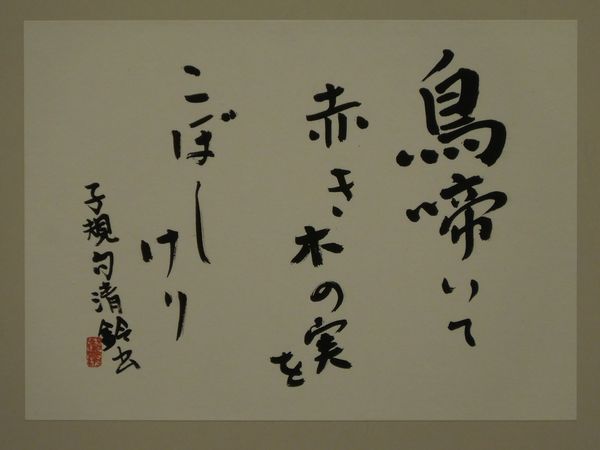 鳥啼いて
赤き木の実を
こぼしけり
子規句清鈴書